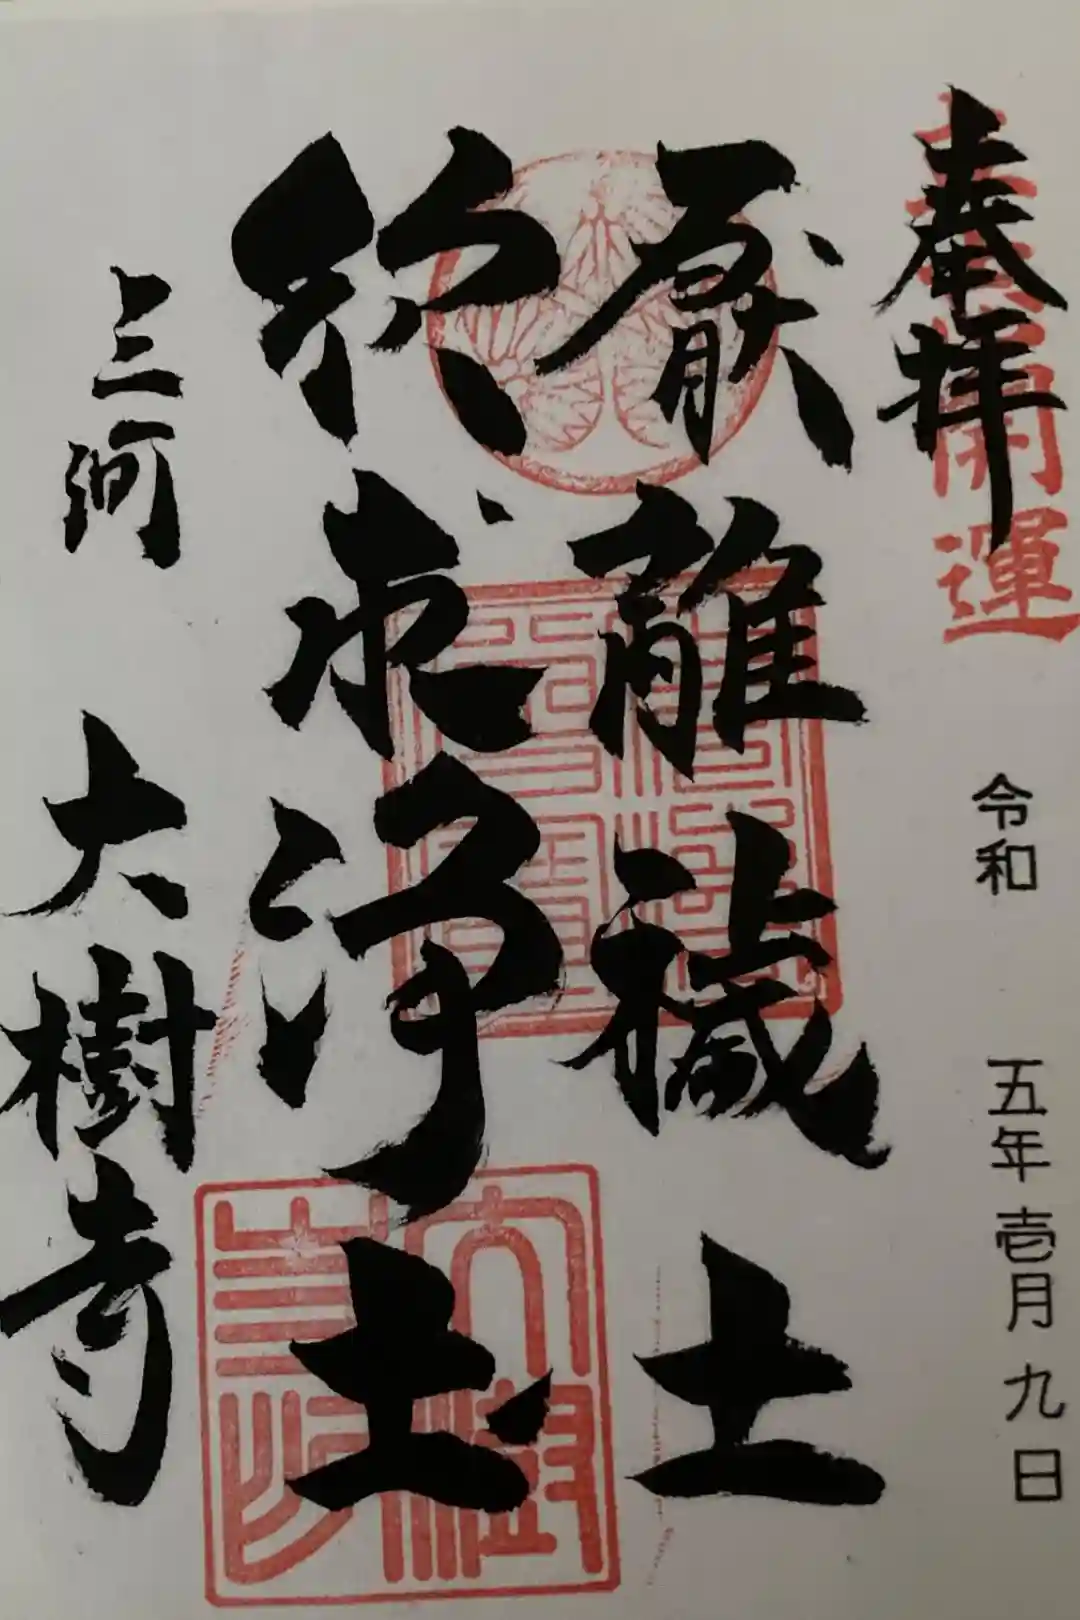 奉拝
開運
令和 五年壱月九日
厭離穢土
欣求浄土
三河 大樹寺